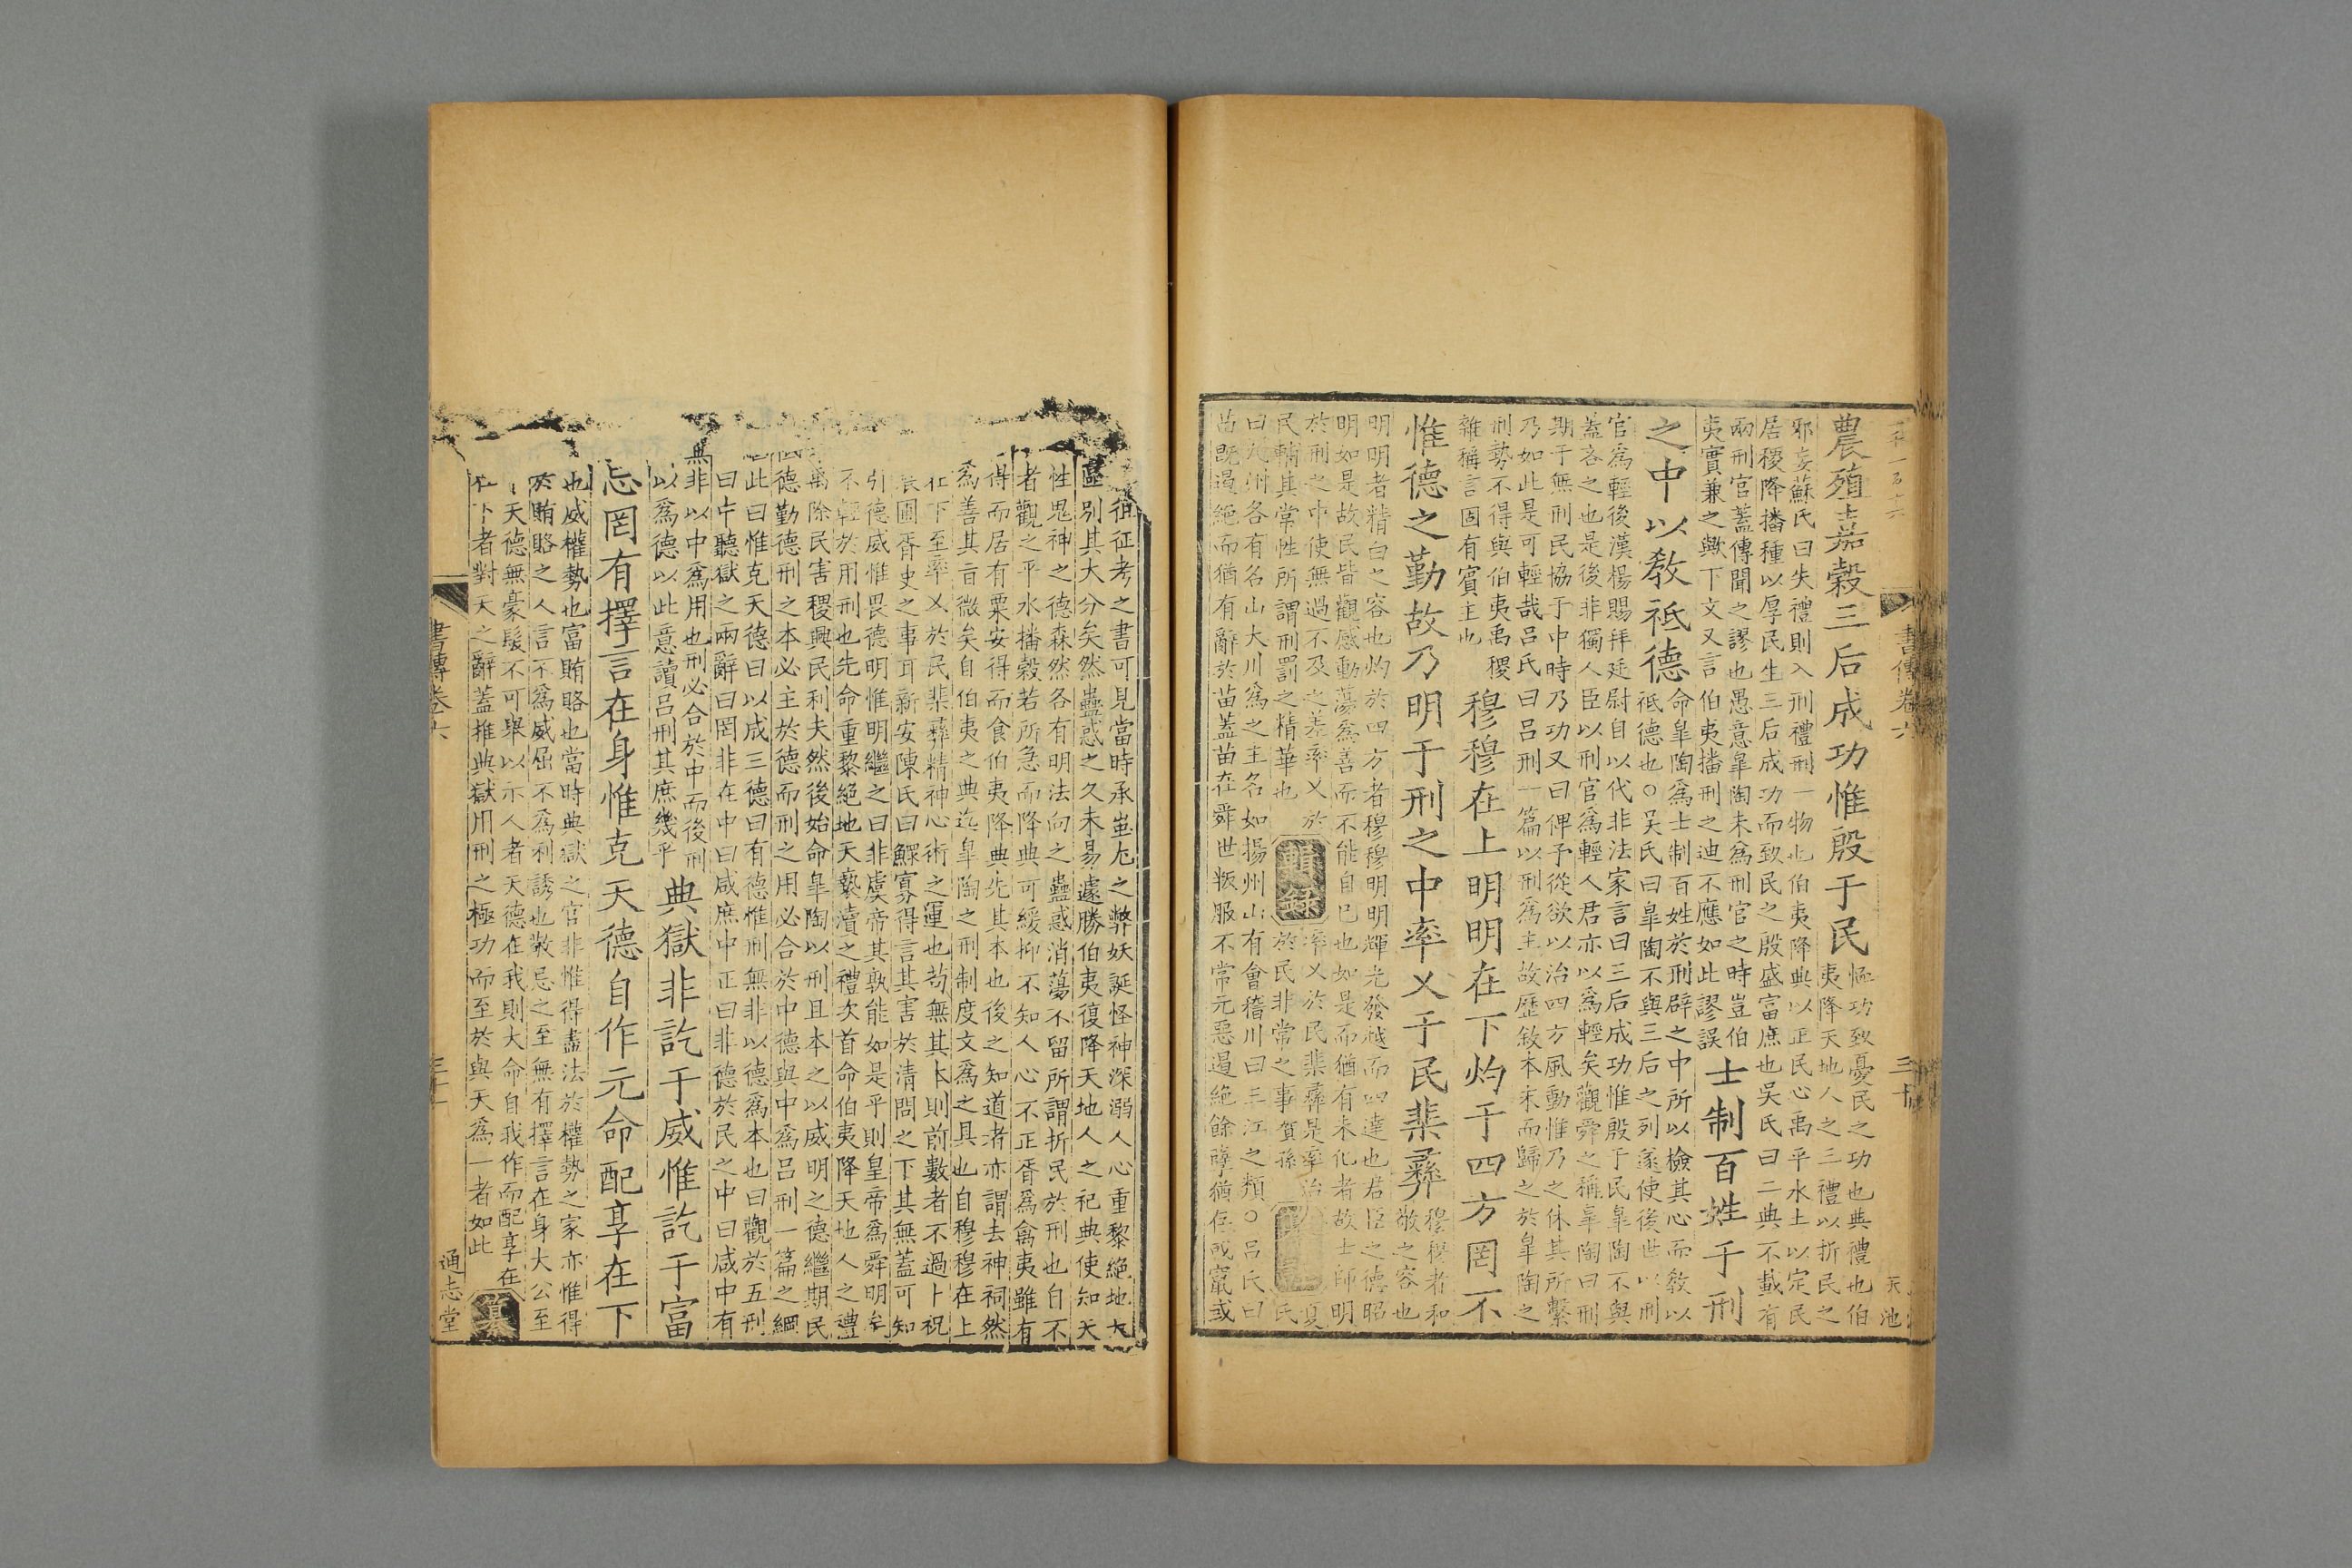 農殖嘉穀三后成功惟殷于民恤功致憂民之功也典禮也伯
夷降天地人之三禮以折民之
邪妄蘇氏曰失禮則入刑禮刑一物也伯夷降典以正民心禹平水土以定民
居稷降播種以厚民生三后成功而致民之殷盛富庶也吳氏曰二典不載有
兩刑官蓋傳聞之謬也愚意臯陶未為刑官之時豈伯
夷實兼之歟下文又言伯夷播刑之迪不應如此謬誤
士制百姓于刑
之中以敎祗德命臯陶為士制百姓於刑辟之中所以檢其心而敎以
祗德也○吳氏曰臯陶不與三后之列遂使後世以刑
官為輕後漢楊賜拜廷尉自以代非法家言曰三后成功惟殷于民臯陶不與
蓋吝之也是後非獨人臣以刑官為輕人君亦以為輕矣觀舜之稱臯陶曰刑
期于無刑民協于中時乃功又曰俾予從欲以治四方風動惟乃之休其所繫
乃如此是可輕哉呂氏曰呂刑一篇以刑為主故歷敘本末而歸之於臯陶之
刑勢不得與伯夷禹稷
雜稱言固有賓主也
穆穆在上明明在下灼于四方罔不
惟德之勤故乃明于刑之中率乂于民棐彝穆穆者和
敬之容也
明明者精白之容也灼於四方者穆穆明明輝光發越而四達也君臣之德昭
明如是故民皆觀感動蕩為善而不能自已也如是而猶有未化者故士師明
於刑之中使無過不及之差率乂於
民輔其常性所謂刑罰之精華也
率乂於民棐彝是率治
於民非常之事賀孫
夏氏
曰九州各有名山大川為之主名如揚州山有會稽川曰三江之類○呂氏曰
苗旣遏絕而猶有辭於苗蓋苗在舜世叛服不常元惡遏絕餘孽猶存或竄或
書傳卷六
三十
天池
徂征考之書可見當時承蚩尤之弊妖誕怪神深溺人心重黎絕地天
區別其大分矣然蠱惑之久未易遽勝伯夷復降天地人之祀典使知天
性鬼神之德森然各有明法向之蠱惑消蕩不留所謂折民於刑也自不
者觀之平水播榖若所急而降典可緩抑不知人心不正胥為禽夷雖有
得而居有粟安得而食伯夷降典先其本也後之知道者亦謂去神祠然
為善其旨微矣自伯夷之典迄臯陶之刑制度文為之具也自穆穆在上
在下至率乂於民棐彝精神心術之運也苟無其本則前數者不過卜祝
獄圄胥史之事耳新安陳氏曰鰥寡得言其害於清問之下其無蓋可知
引德威惟畏德明惟明繼之曰非虞帝其孰能如是乎則皇帝為舜明矣
不輕於用刑也先命重黎絕地天褻瀆之禮次首命伯夷降天地人之禮
禹除民害稷興民利夫然後始命臯陶以刑且本之以威明之德繼期民
德勤德刑之本必主於德而刑之用必合於中德與中為呂刑一篇之綱
此曰惟克天德曰以成三德曰有德惟刑無非以德為本也曰觀於五刑
曰中聽獄之兩辭曰罔非在中曰咸庶中正曰非德於民之中曰咸中有
無非以中為用也刑必合於中而後刑
以為德以此意讀呂刑其庶幾乎
典獄非訖于威惟訖于富
忌罔有擇言在身惟克天德自作元命配享在下
也威權勢也富賄賂也當時典獄之官非惟得盡法於權勢之家亦惟得
於賄賂之人言不為威屈不為利誘也敬忌之至無有擇言在身大公至
天德無豪髮不可舉以示人者天德在我則大命自我作而配享在
在下者對天之辭蓋推典獄用刑之極功而至於與天為一者如此
纂
書傳卷六
通志堂